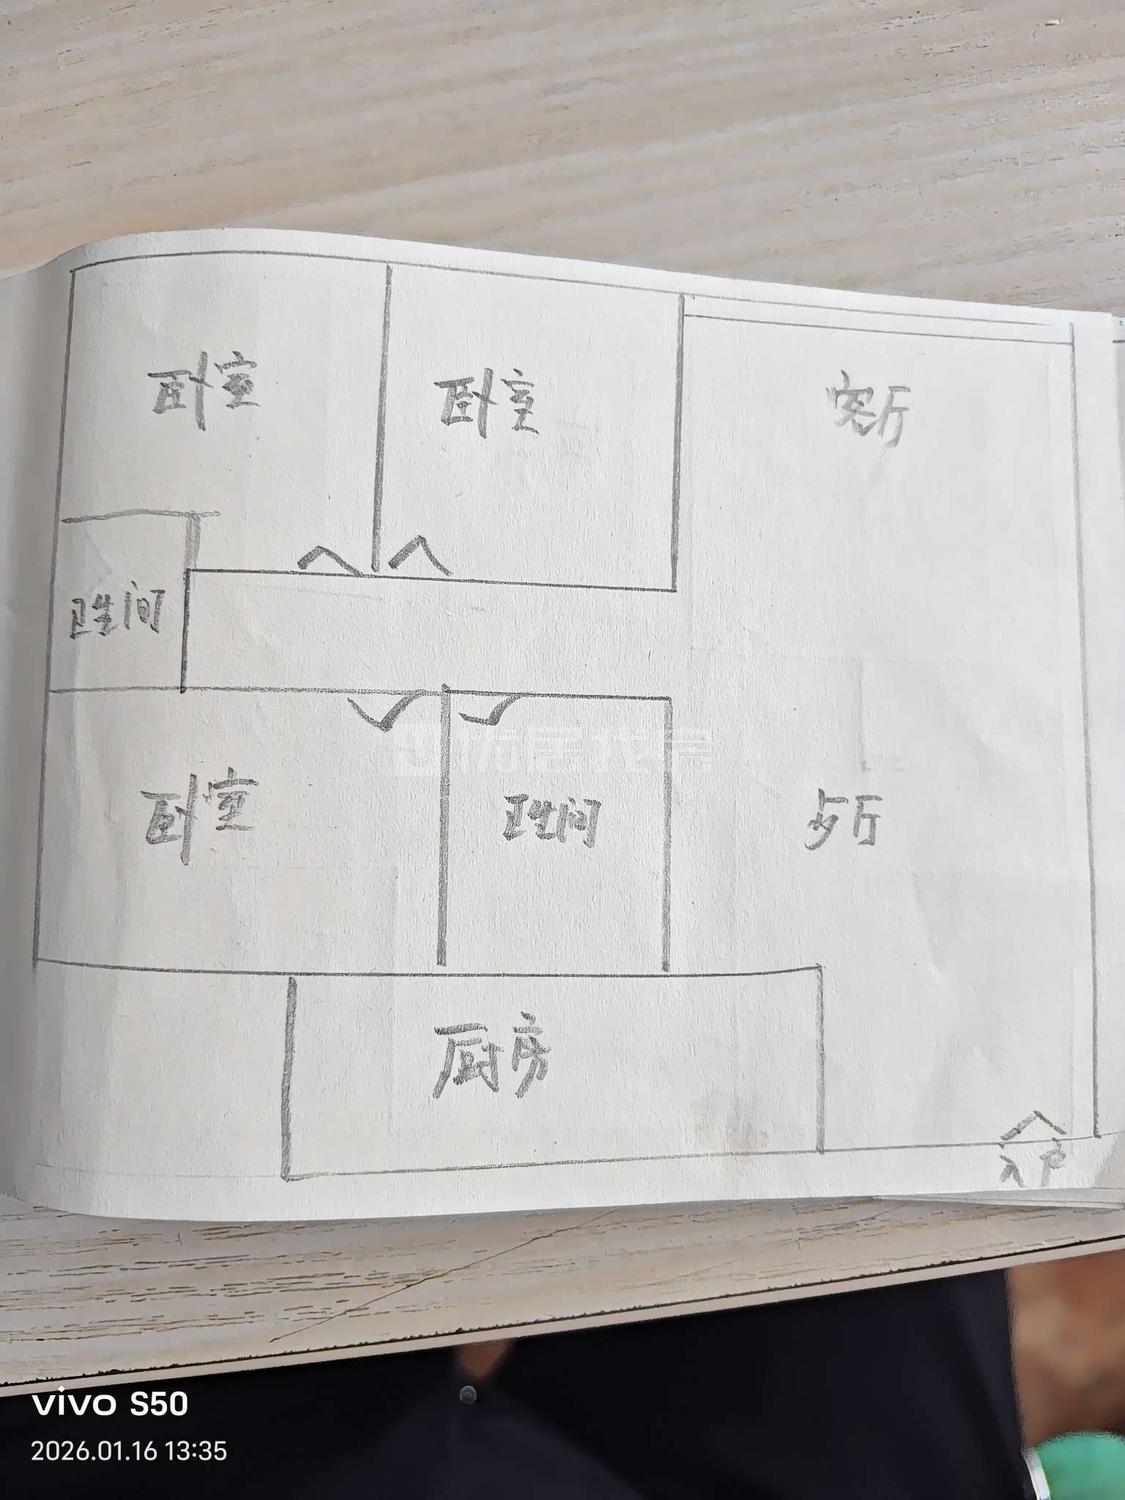 卧室
卧室
客厅
卫生间
卧室
卫生间
歺厅
厨房
入户
vivo S50
2026.01.16 13:35